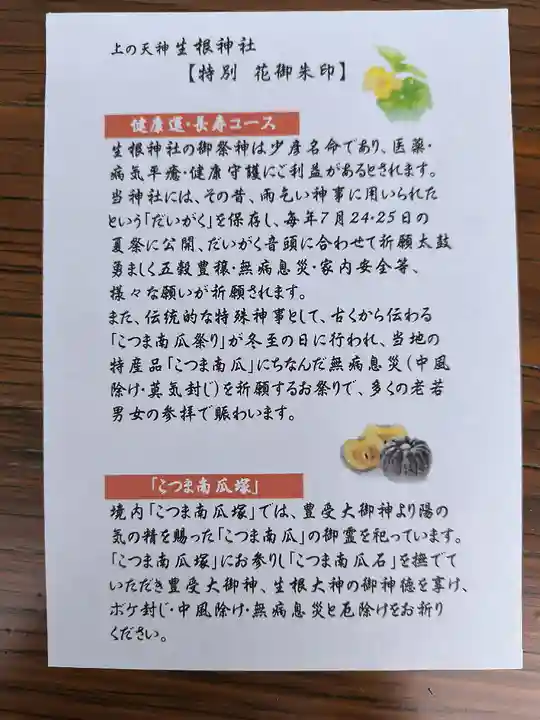 上の天神 生根神社
【特別 花御朱印】
健康運・長寿コース
生根神社の御祭神は少彦名命であり、医薬・
病気平癒・健康守護にご利益があるとされます。
当神社には、その昔、雨乞い神事に用いられた
という「だいがく」を保存し、毎年7月24・25日の
夏祭に公開、だいがく音頭に合わせて祈願太鼓
勇ましく五穀豊穣・無病息災・家内安全等、
様々な願いが祈願されます。
また、伝統的な特殊神事として、古くから伝わる
「こつま南瓜祭り」が冬至の日に行われ、当地の
特産品「こつま南瓜」にちなんだ無病息災(中風
除け・莫気封じ)を祈願するお祭りで、多くの老若
男女の参拝で賑わいます。
「こつま南瓜塚」
境内「こつま南瓜塚」では、豊受大御神より陽の
気の精を賜った「こつま南瓜」の御霊を祀っています。
「こつま南瓜塚」にお参りし「こつま南瓜石」を撫でて
いただき豊受大御神、生根大神の御神徳を享け、
ボケ封じ・中風除け・無病息災と厄除けをお祈り
ください。